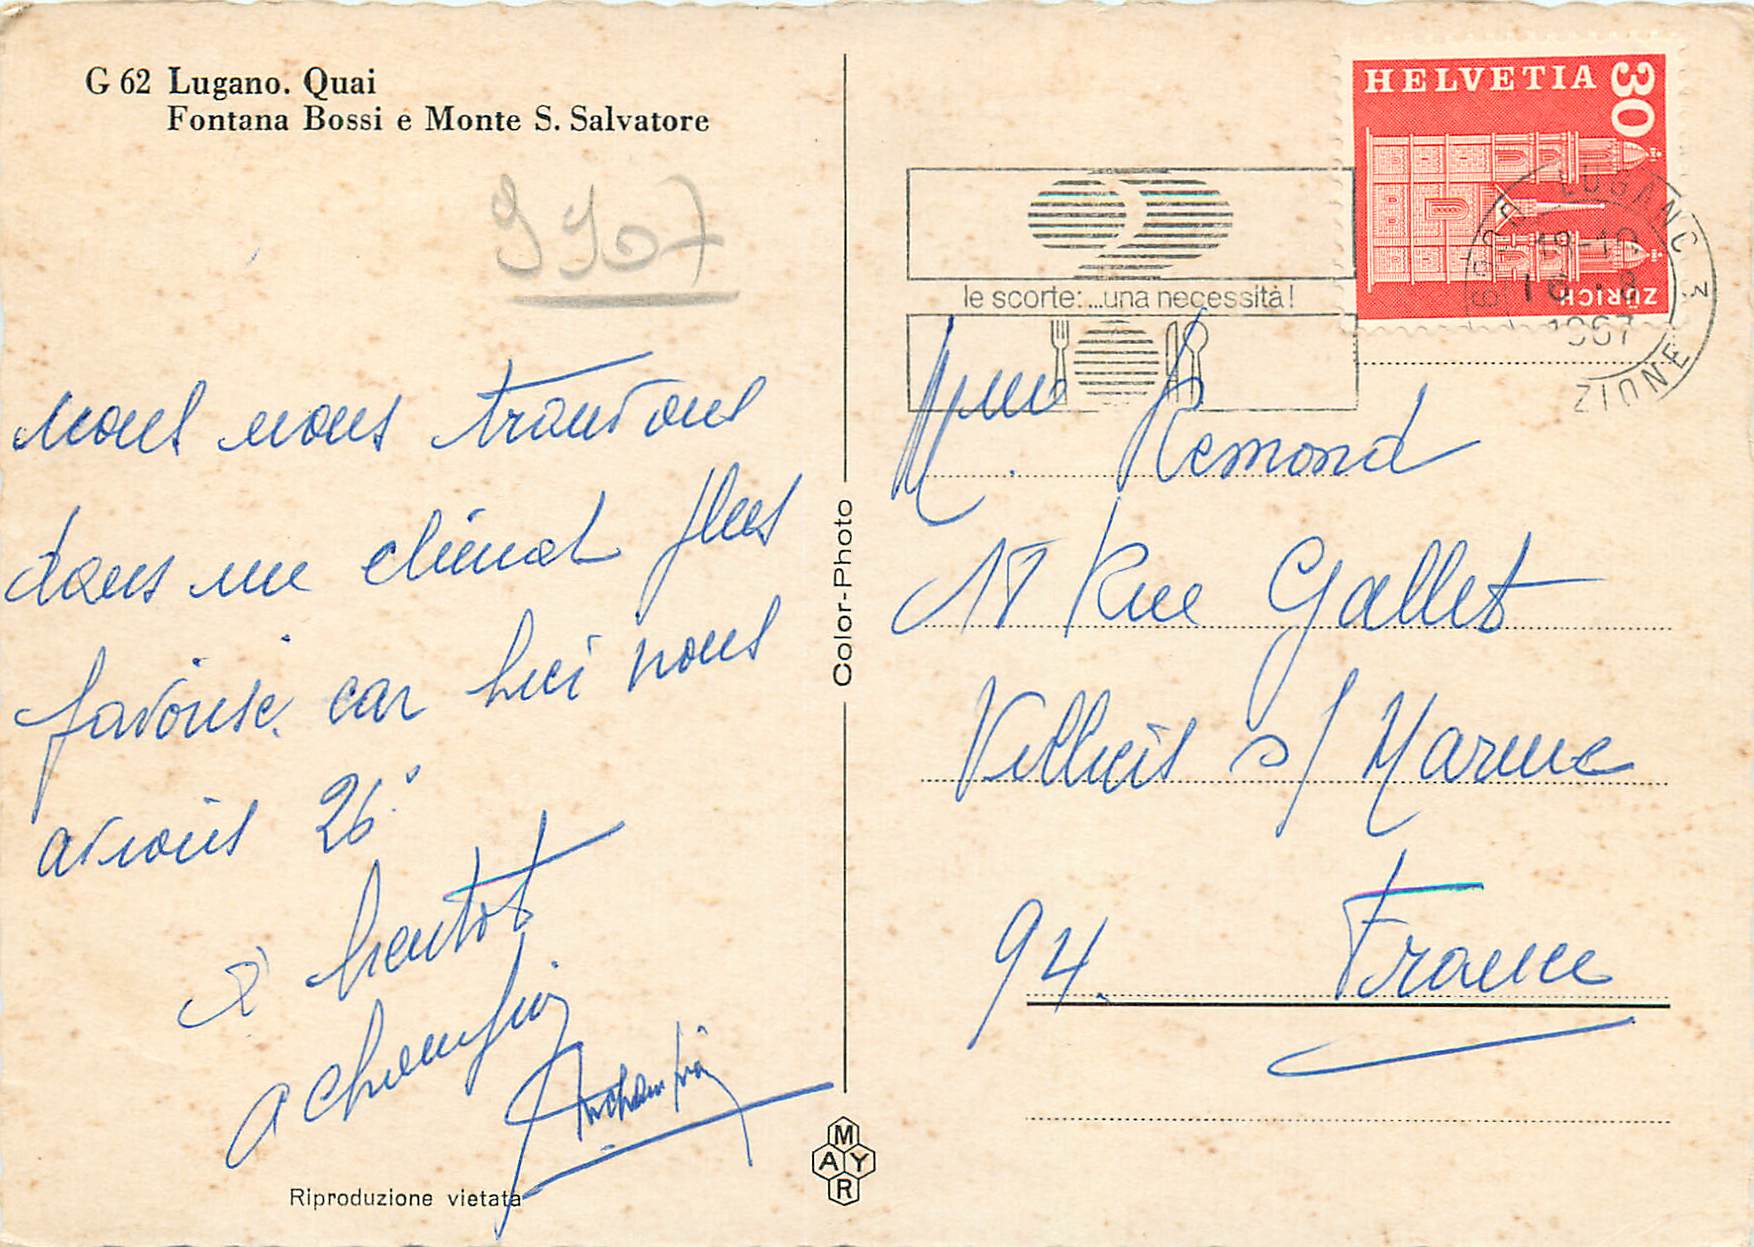 G 62 Lugano. Quai
Fontana Bossi e Monte S. Salvatore
9907
nous nous trouvons
dans un climat plus
favorisé. car hici nous
avions 26°
à bientot
a champigny
Riproduzione vietata
Color-Photo
MAYR
HELVETIA 30
ZÜRICH
LUGANO 3
18-19
1967
ZIONE
le scorte:...una necessità!
Mme Remond
18 Rue Gallet
Villiers s/ Marne
94. France